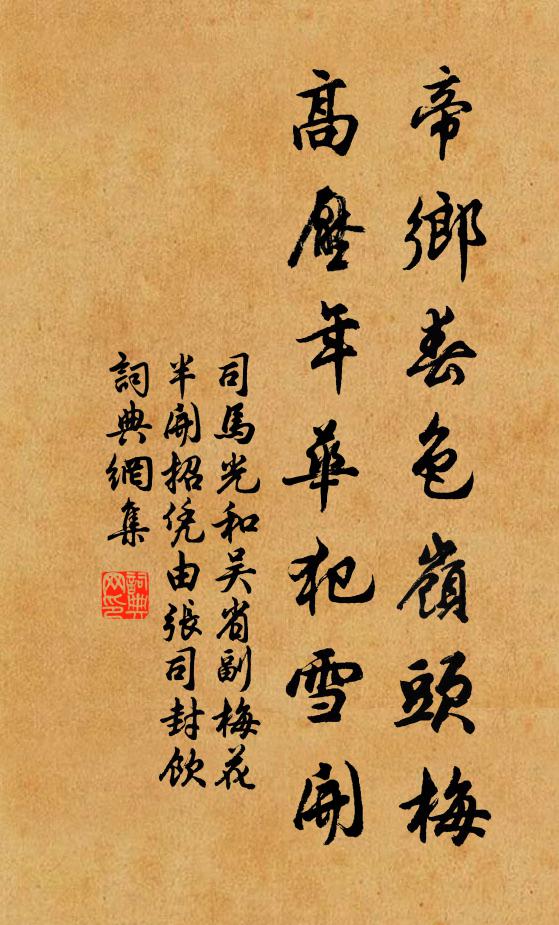 帝鄉春色嶺頭梅
高壓年華犯雪開
司馬光和吴省副梅花
半開招凭由張司封飲
詞典網集
詞典
網印